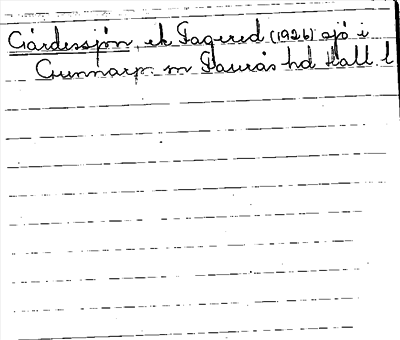 Gårdessjön, ek Fagered (1926) sjö i
Gunnarp m Faurås hd Hall. l